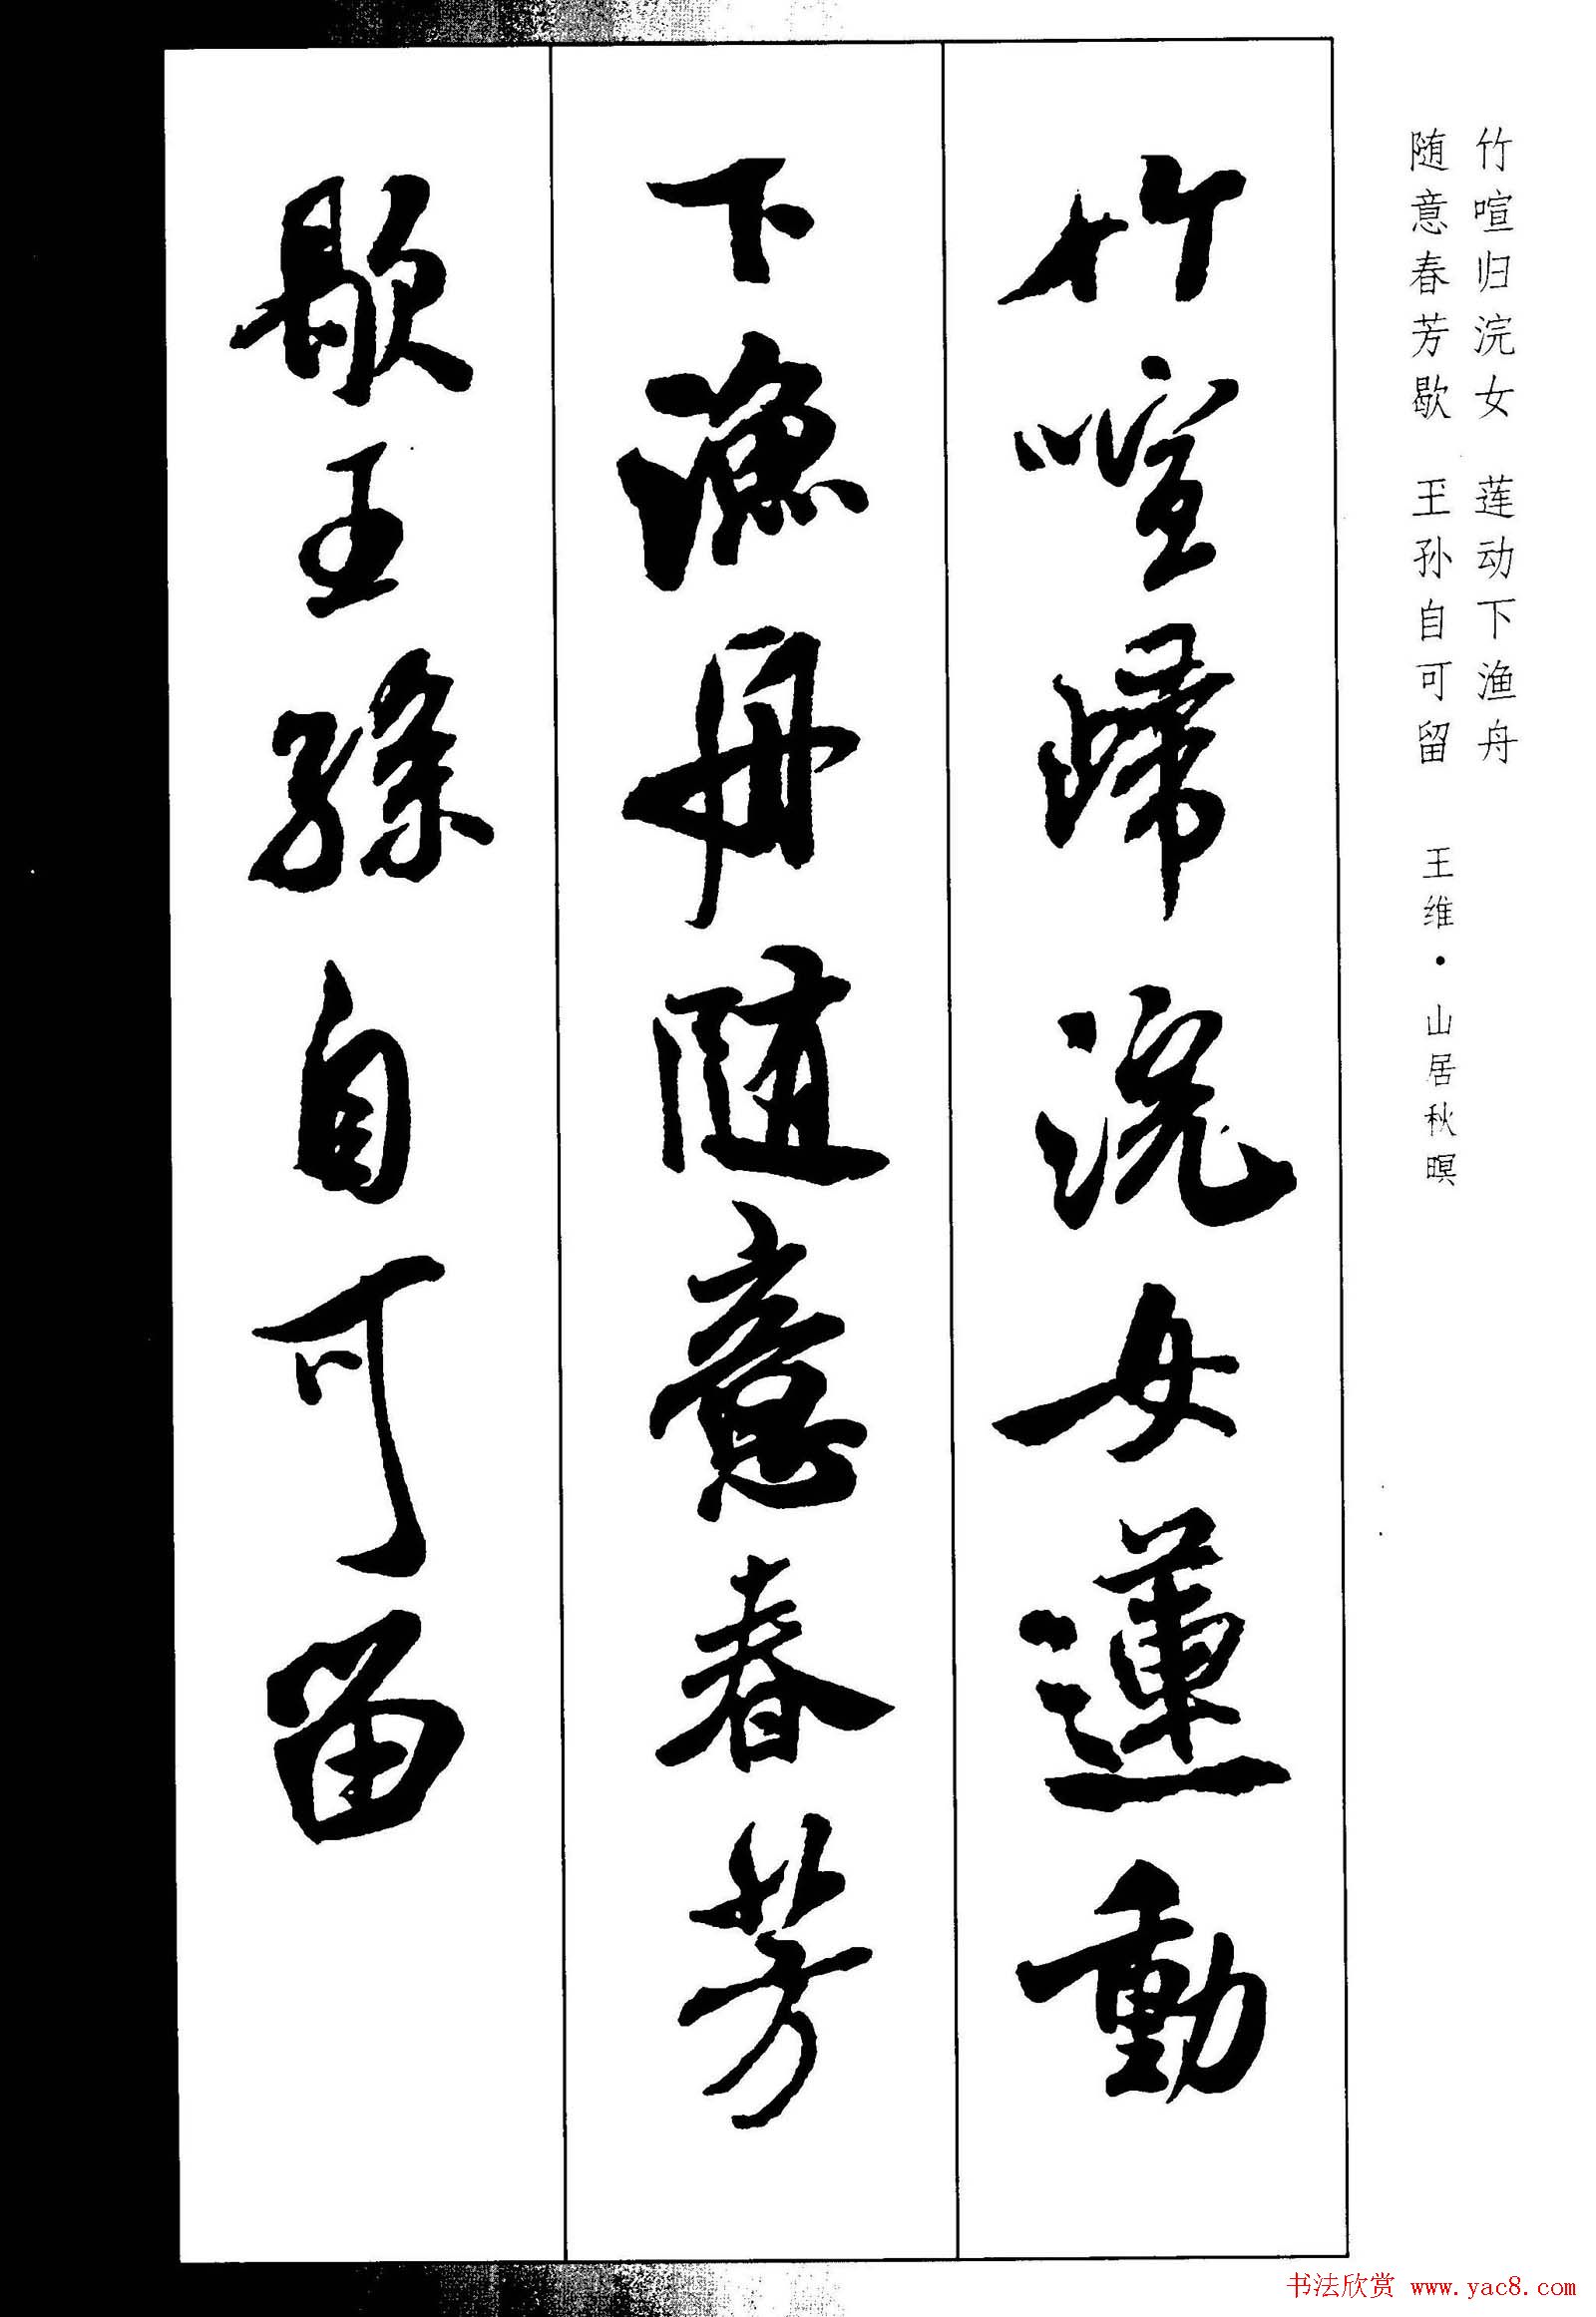 竹喧归浣女 莲动下渔舟
随意春芳歇 王孙自可留
王维·山居秋暝
竹喧歸浣女蓮動
下漁舟随意春芳
歇王孫自可留
书法欣赏 www.yac8.com